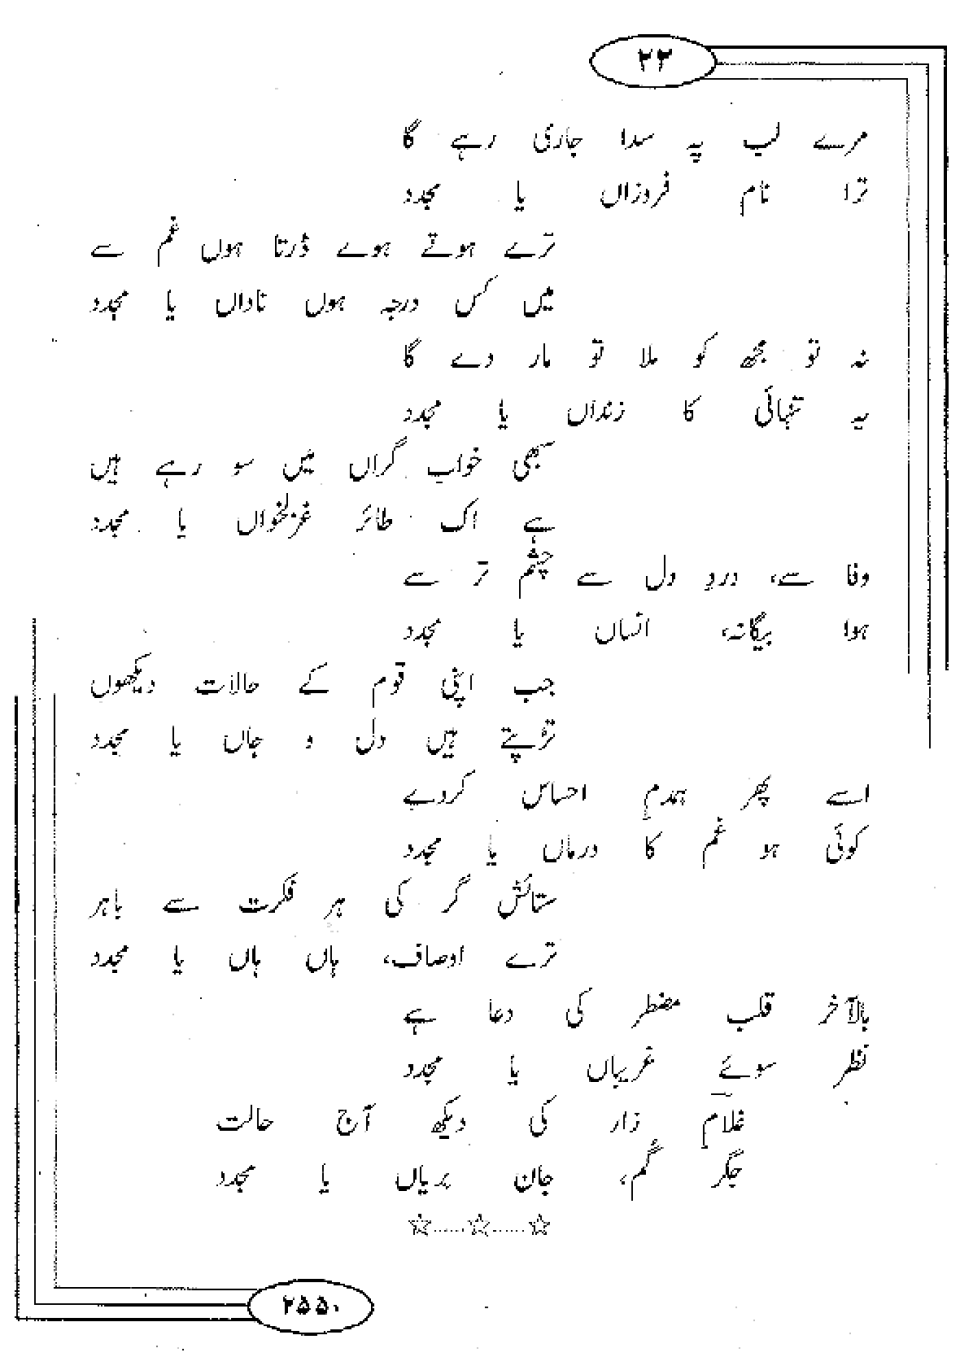 ۲۲
مرے لب پہ سدا جاری رہے گا
ترا نام فروزاں یا مجدد
ترے ہوتے ہوے ڈرتا ہوں غم سے
میں کس درجہ ہوں ناداں یا مجدد
نہ تو مجھ کو ملا تو مار دے گا
یہ تنہائی کا زنداں یا مجدد
سبھی خواب گراں میں سو رہے ہیں
ہے اک طائر غزلخواں یا مجدد
وفا سے، دردِ دل سے چشم تر سے
ہوا بیگانہ، انساں یا مجدد
جب اپنی قوم کے حالات دیکھوں
تڑپتے ہیں دل و جاں یا مجدد
اسے پھر ہمدمِ احساس کردے
کوئی ہو غم کا درماں یا مجدد
ستائش گر کی ہر فکرت سے باہر
ترے اوصاف، ہاں ہاں یا مجدد
بالآخر قلب مضطر کی دعا ہے
نظر سوئے غریباں یا مجدد
غلامِ زار کی دیکھ آج حالت
جگر گم، جان بریاں یا مجدد
☆.....☆.....☆
۲۵۵۰